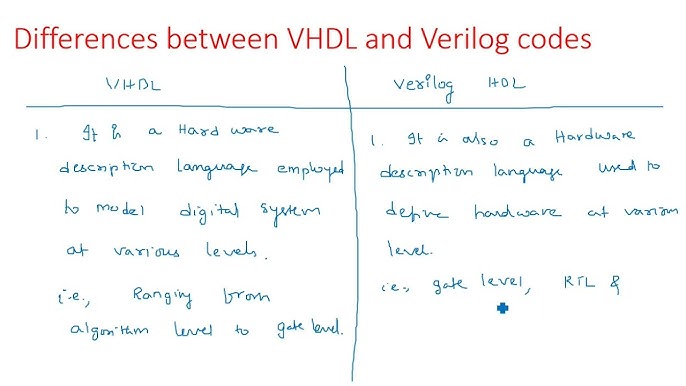 Differences between VHDL and Verilog codes
VHDL
1. It is a Hardware
description language employed
to model digital system
at various levels.
i.e., Ranging from
algorithm level to gate level.
Verilog HDL
1. It is also a Hardware
description language used to
define hardware at various
level.
i.e., gate level, RTL &